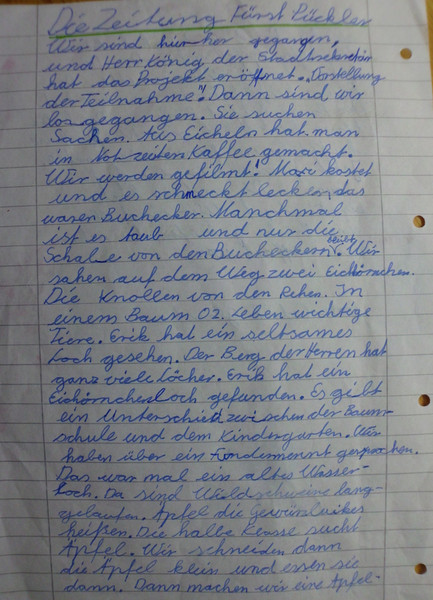 Die Zeitung Fürst Pückler
Wir sind hier her gegangen,
und Herr König der Stadtsekretär
hat das Projekt eröffnet. „Darstellung
der Teilnahme". Dann sind wir
los gegangen. Sie suchen
Sachen. Aus Eicheln hat man
in Not zeiten Kaffee gemacht.
Wir werden gefilmt! Mari kostet
und es schmeckt lecker, das
waren Buchecker. Manchmal
ist es taub und nur die
Schale von den Bucheckern bleibt. Wir
sahen auf dem Weg zwei Eichörnchen.
Die Knollen von den Rehen. In
einem Baum 02. Leben wichtige
Tiere. Erik hat ein seltsames
Loch gesehen. Der Berg der Herren hat
ganz viele Löcher. Erik hat ein
Eichörnchenloch gefunden. Es gibt
ein Unterschied zwischen der Baum-
schule und dem Kindergarten. Wir
haben über ein gesprochen.
Das war mal ein altes Wasser-
loch. Da sind Wildschweine lang-
gelaufen. Äpfel die
heißen. Die halbe Klasse sucht
Äpfel. Wir schneiden dann
die Äpfel klein und essen sie
dann. Dann machen wir eine Apfel-